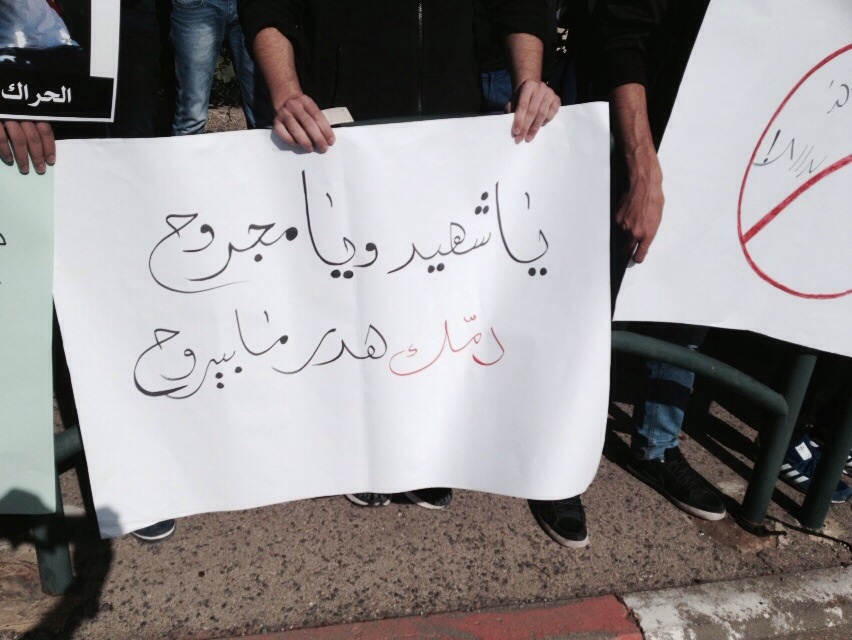 الحراك
يا شهيد ويا مجروح
دمّك هدر ما بيروح